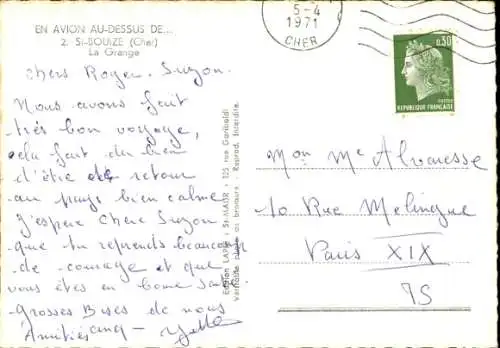 EN AVION AU-DESSUS DE...
2. St-BOUIZE (Cher)
La Grange
Chers Roger. Suzon.
Nous avons fait
très bon voyage,
cela fait du bien
d'être de retour
au pays bien calme
J'espère Chère Suzon
que tu reprends beaucoup
de courage et que
vous êtes en bonne santé
Grosses Bises de nous
Amitiés cinq
Edition LAPIE - St-MAUR - 125, rue Garibaldi
Véritable photo au bromure. Reprod. Interdite.
5-4
1971
CHER
0,30
POSTES
REPUBLIQUE FRANÇAISE
Mon Me Alvaresse
10 Rue Melingue
Paris XIX
75